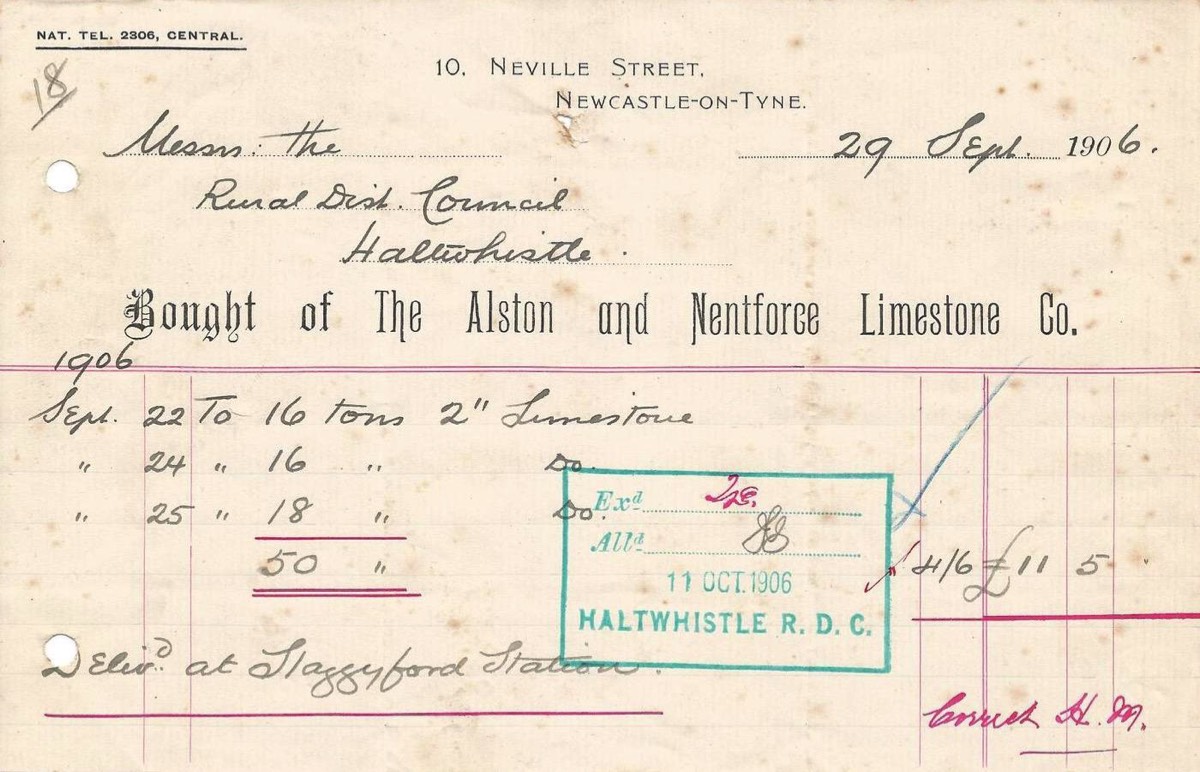 NAT. TEL. 2306, CENTRAL.
18
10, NEVILLE STREET,
NEWCASTLE-ON-TYNE.
Messrs. the
29 Sept. 1906.
Rural Dist. Council
Haltwhistle.
Bought of The Alston and Nentforce Limestone Co.
1906
Sept. 22 To 16 tons 2" Limestone
" 24 " 16 " Do.
" 25 " 18 " Do.
50 " 4/6 £11 5
Exd
Alld
11 OCT. 1906
HALTWHISTLE R. D. C.
Delivd at Slaggyford Station.
Correct H. M.